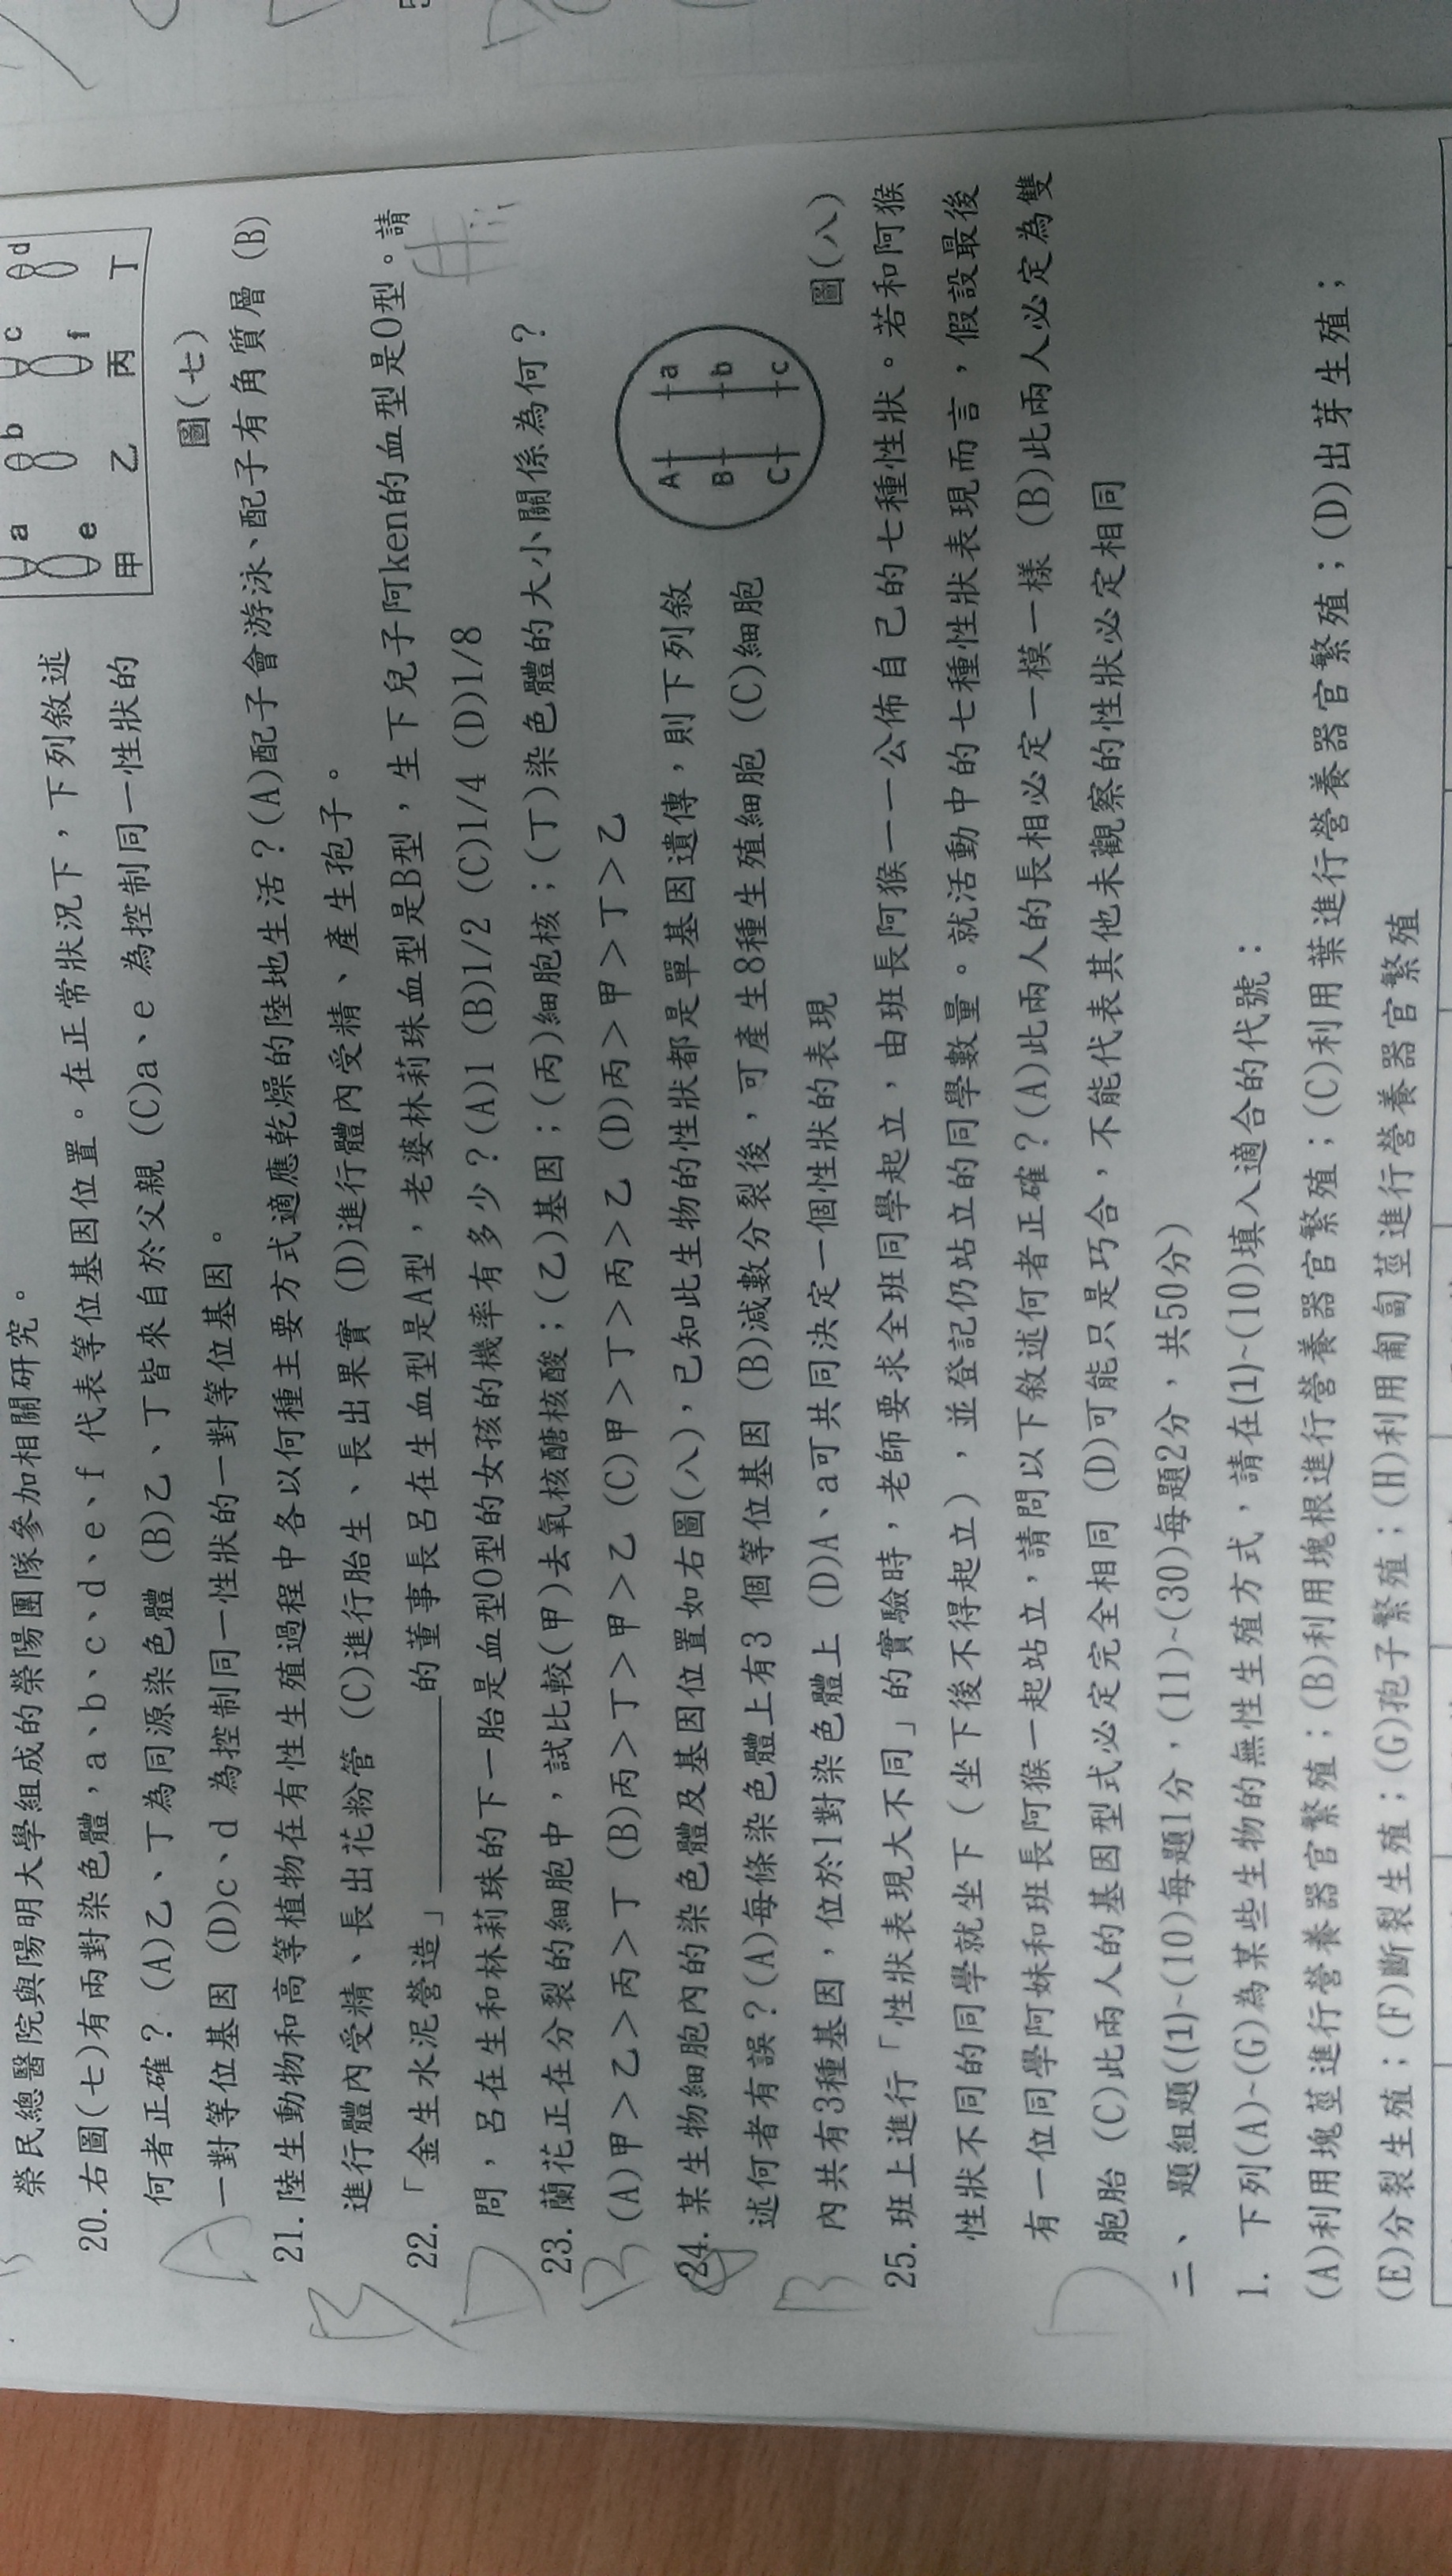 榮民總醫院與陽明大學組成的榮陽團隊參加相關研究。
20.右圖(七)有兩對染色體，a、b、c、d、e、f 代表等位基因位置。在正常狀況下，下列敘述
何者正確？(A)乙、丁為同源染色體 (B)乙、丁皆來自於父親 (C)a、e 為控制同一性狀的
一對等位基因 (D)c、d 為控制同一性狀的一對等位基因 。
a b c d
e f
甲 乙 丙 丁
圖(七)
A
21.陸生動物和高等植物在有性生殖過程中各以何種主要方式適應乾燥的陸地生活？(A)配子會游泳、配子有角質層 (B)
進行體內受精、長出花粉管 (C)進行胎生、長出果實 (D)進行體內受精、產生孢子。
B
22.「金生水泥營造」________的董事長呂在生血型是A型，老婆林莉珠血型是B型，生下兒子阿ken的血型是O型。請
問，呂在生和林莉珠的下一胎是血型O型的女孩的機率有多少？(A)1 (B)1/2 (C)1/4 (D)1/8
D
23.蘭花正在分裂的細胞中，試比較(甲)去氧核醣核酸；(乙)基因；(丙)細胞核；(丁)染色體的大小關係為何？
(A)甲＞乙＞丙＞丁 (B)丙＞丁＞甲＞乙 (C)甲＞丁＞丙＞乙 (D)丙＞甲＞丁＞乙
B
24.某生物細胞內的染色體及基因位置如右圖(八)，已知此生物的性狀都是單基因遺傳，則下列敘
述何者有誤？(A)每條染色體上有3 個等位基因 (B)減數分裂後，可產生8種生殖細胞 (C)細胞
內共有3種基因，位於1對染色體上 (D)A、a可共同決定一個性狀的表現
A a
B b
C c
圖(八)
B
25.班上進行「性狀表現大不同」的實驗時，老師要求全班同學起立，由班長阿猴一一公佈自己的七種性狀。若和阿猴
性狀不同的同學就坐下（坐下後不得起立），並登記仍站立的同學數量。就活動中的七種性狀表現而言，假設最後
有一位同學阿妹和班長阿猴一起站立，請問以下敘述何者正確？(A)此兩人的長相必定一模一樣 (B)此兩人必定為雙
胞胎 (C)此兩人的基因型式必定完全相同 (D)可能只是巧合，不能代表其他未觀察的性狀必定相同
D
二、 題組題((1)~(10)每題1分，(11)~(30)每題2分，共50分)
1. 下列(A)~(G)為某些生物的無性生殖方式，請在(1)~(10)填入適合的代號：
(A)利用塊莖進行營養器官繁殖；(B)利用塊根進行營養器官繁殖；(C)利用葉進行營養器官繁殖；(D)出芽生殖；
(E)分裂生殖；(F)斷裂生殖；(G)孢子繁殖；(H)利用匍匐莖進行營養器官繁殖